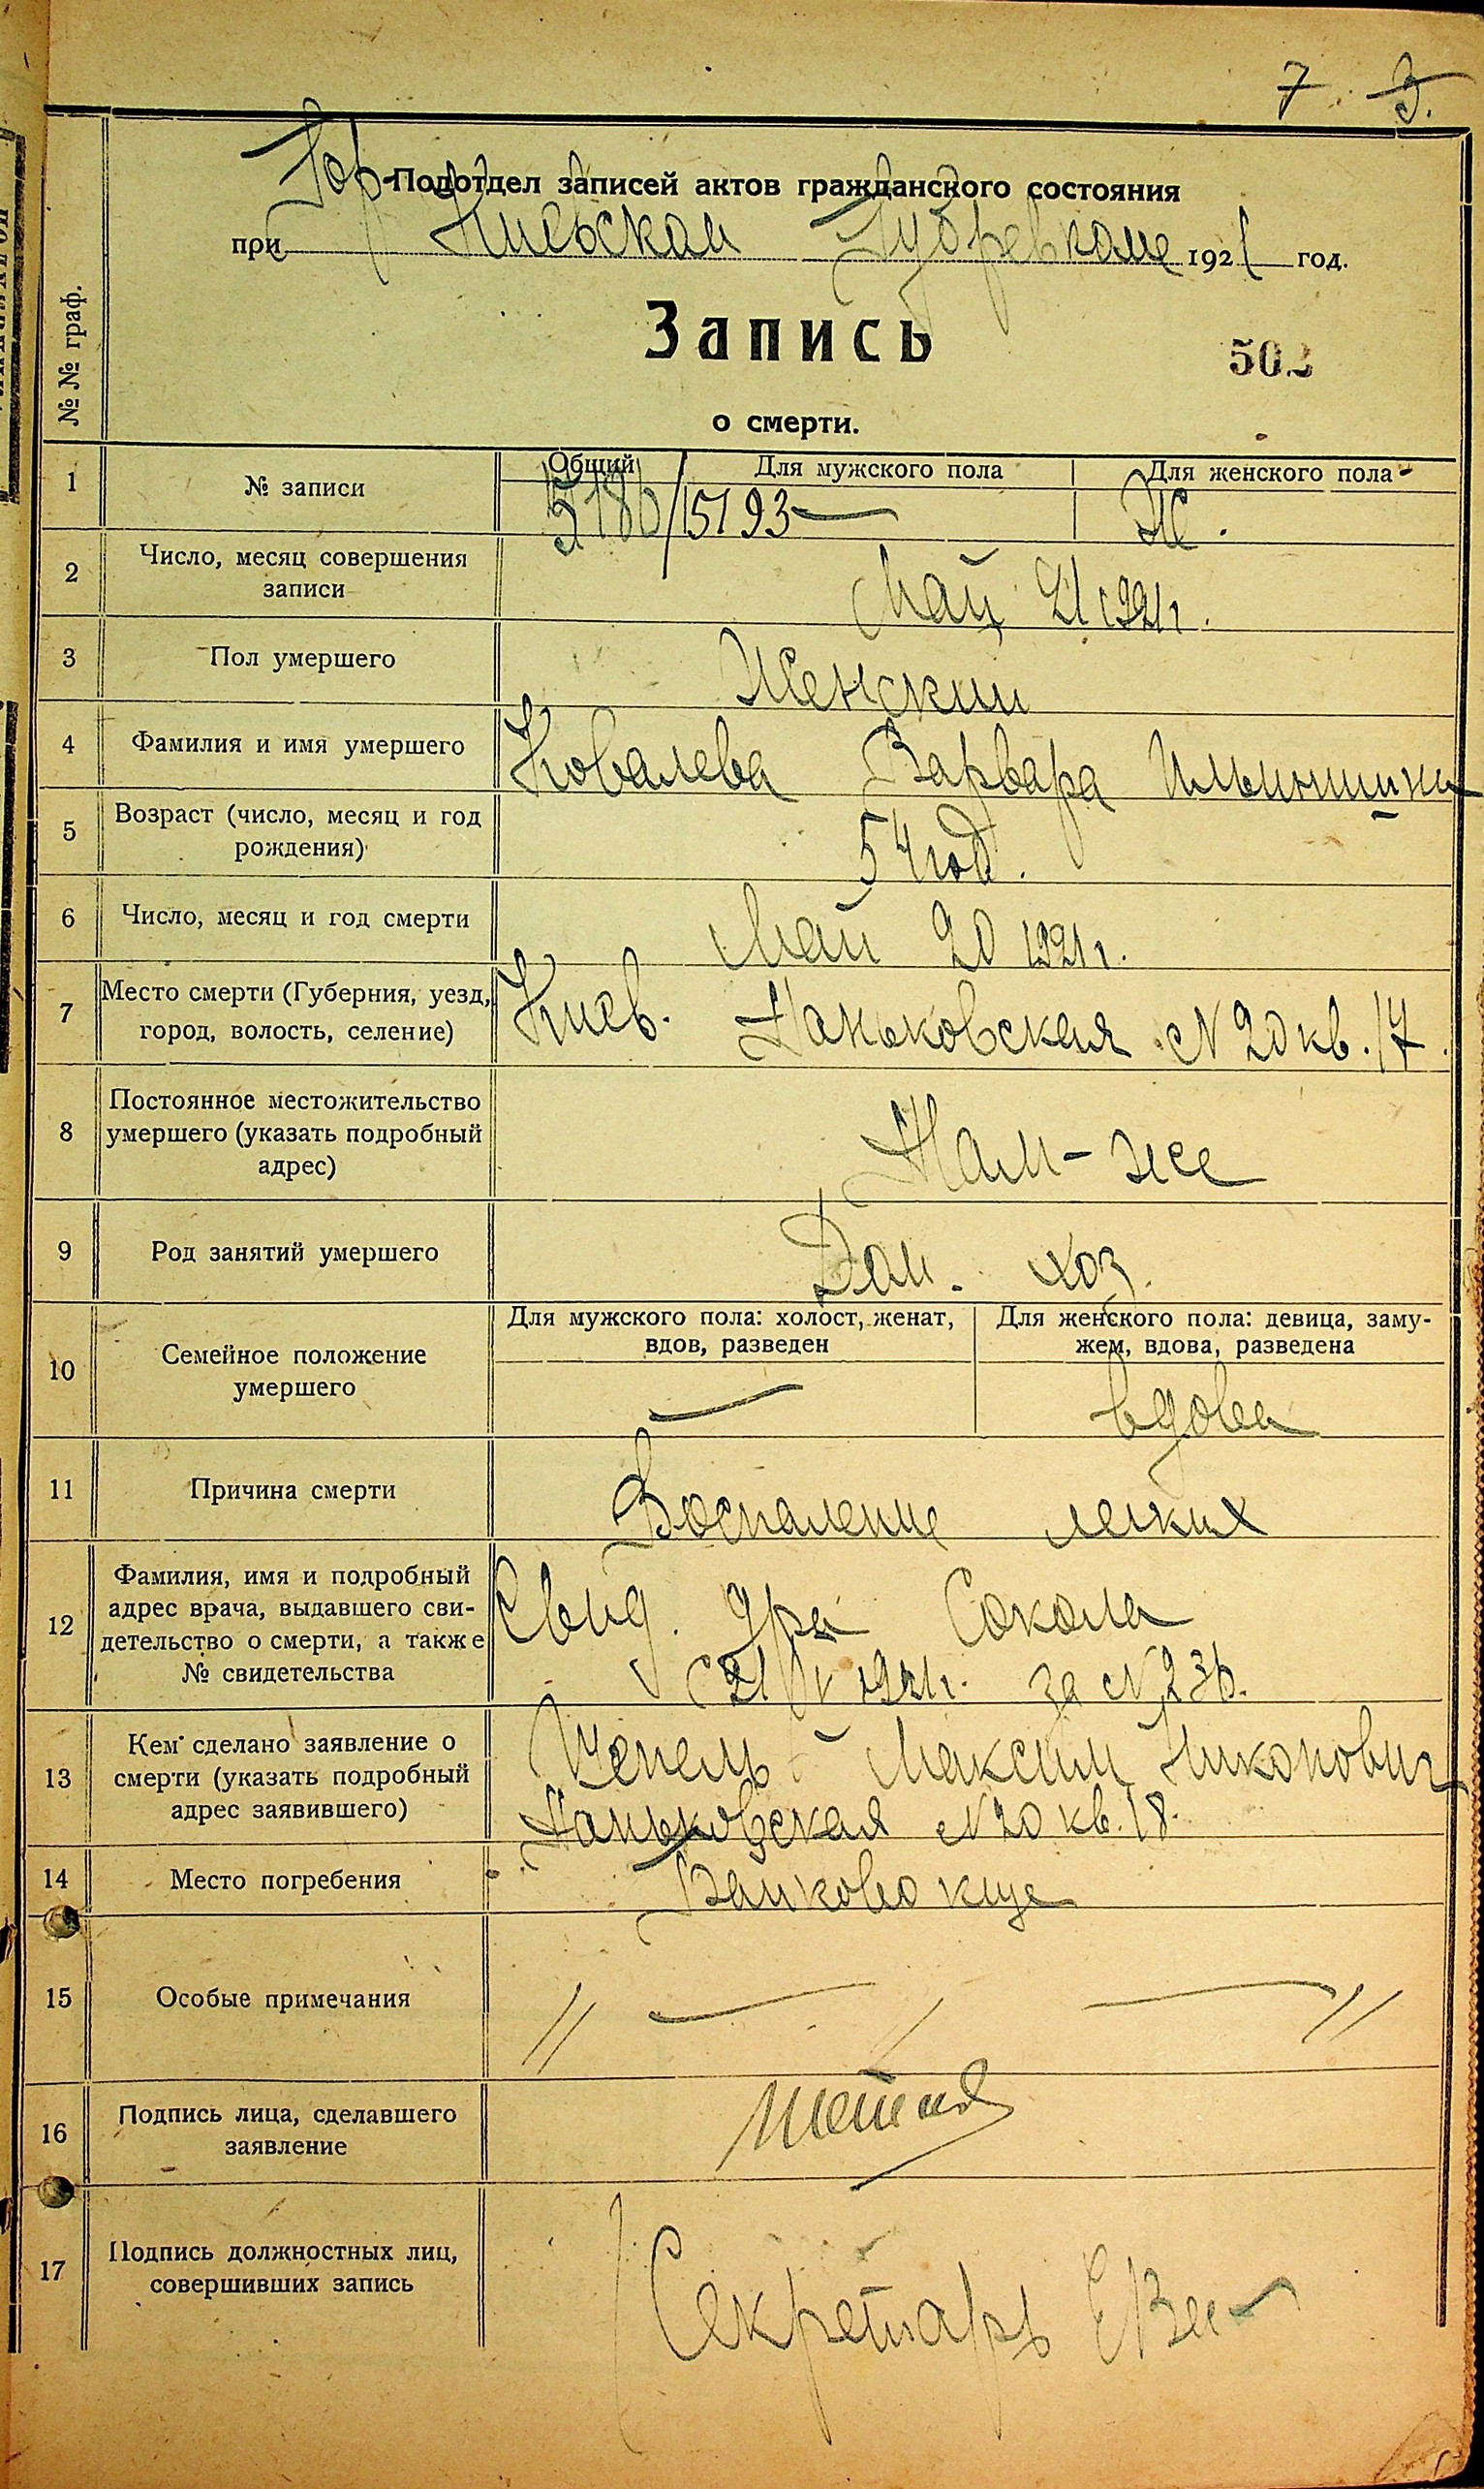 7. 3.
Гор-Подотдел записей актов гражданского состояния
при Киевском Губревкоме 1921 год.
Запись
502
о смерти.
№ № граф.
1 № записи Общий Для мужского пола Для женского пола
5186/5193 — Ж.
2 Число, месяц совершения
записи
Май 21 1921 г.
3 Пол умершего Женский
4 Фамилия и имя умершего Ковалева Варвара
5 Возраст (число, месяц и год
рождения)
54 год.
6 Число, месяц и год смерти Май 20 1921 г.
7 Место смерти (Губерния, уезд,
город, волость, селение)
Киев. Паньковская № 20 кв. 17.
8 Постоянное местожительство
умершего (указать подробный
адрес)
Там-же
9 Род занятий умершего Дом. хоз.
10 Семейное положение
умершего
Для мужского пола: холост, женат,
вдов, разведен
Для женского пола: девица, заму-
жем, вдова, разведена
— вдова
11 Причина смерти Воспаление легких
12 Фамилия, имя и подробный
адрес врача, выдавшего сви-
детельство о смерти, а также
№ свидетельства
Свид. дра Сокола
21/V 1921 г. за № 236.
13 Кем сделано заявление о
смерти (указать подробный
адрес заявившего)
Максим Никонович
Паньковская № 20 кв. 18.
14 Место погребения Байково кще
15 Особые примечания // — — //
16 Подпись лица, сделавшего
заявление
17 Подпись должностных лиц,
совершивших запись
Секретарь